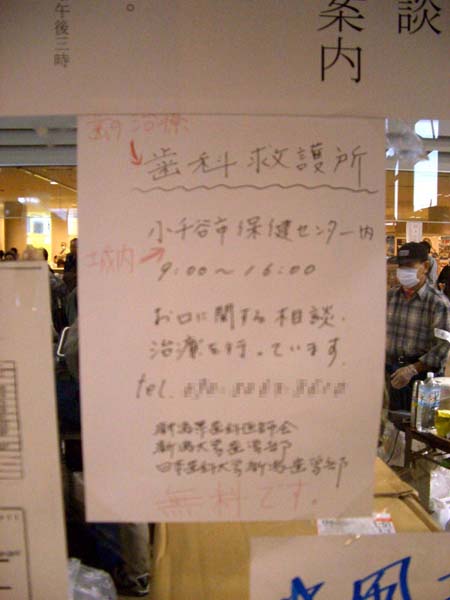 談
案内
。
午後三時
歯の治療
歯科救護所
小千谷市保健センター内
城内
9:00〜16:00
お口に関する相談、
治療を行っています。
tel.
新潟県歯科医師会
新潟大学歯学部
日本歯科大学新潟歯学部
無料です。
風